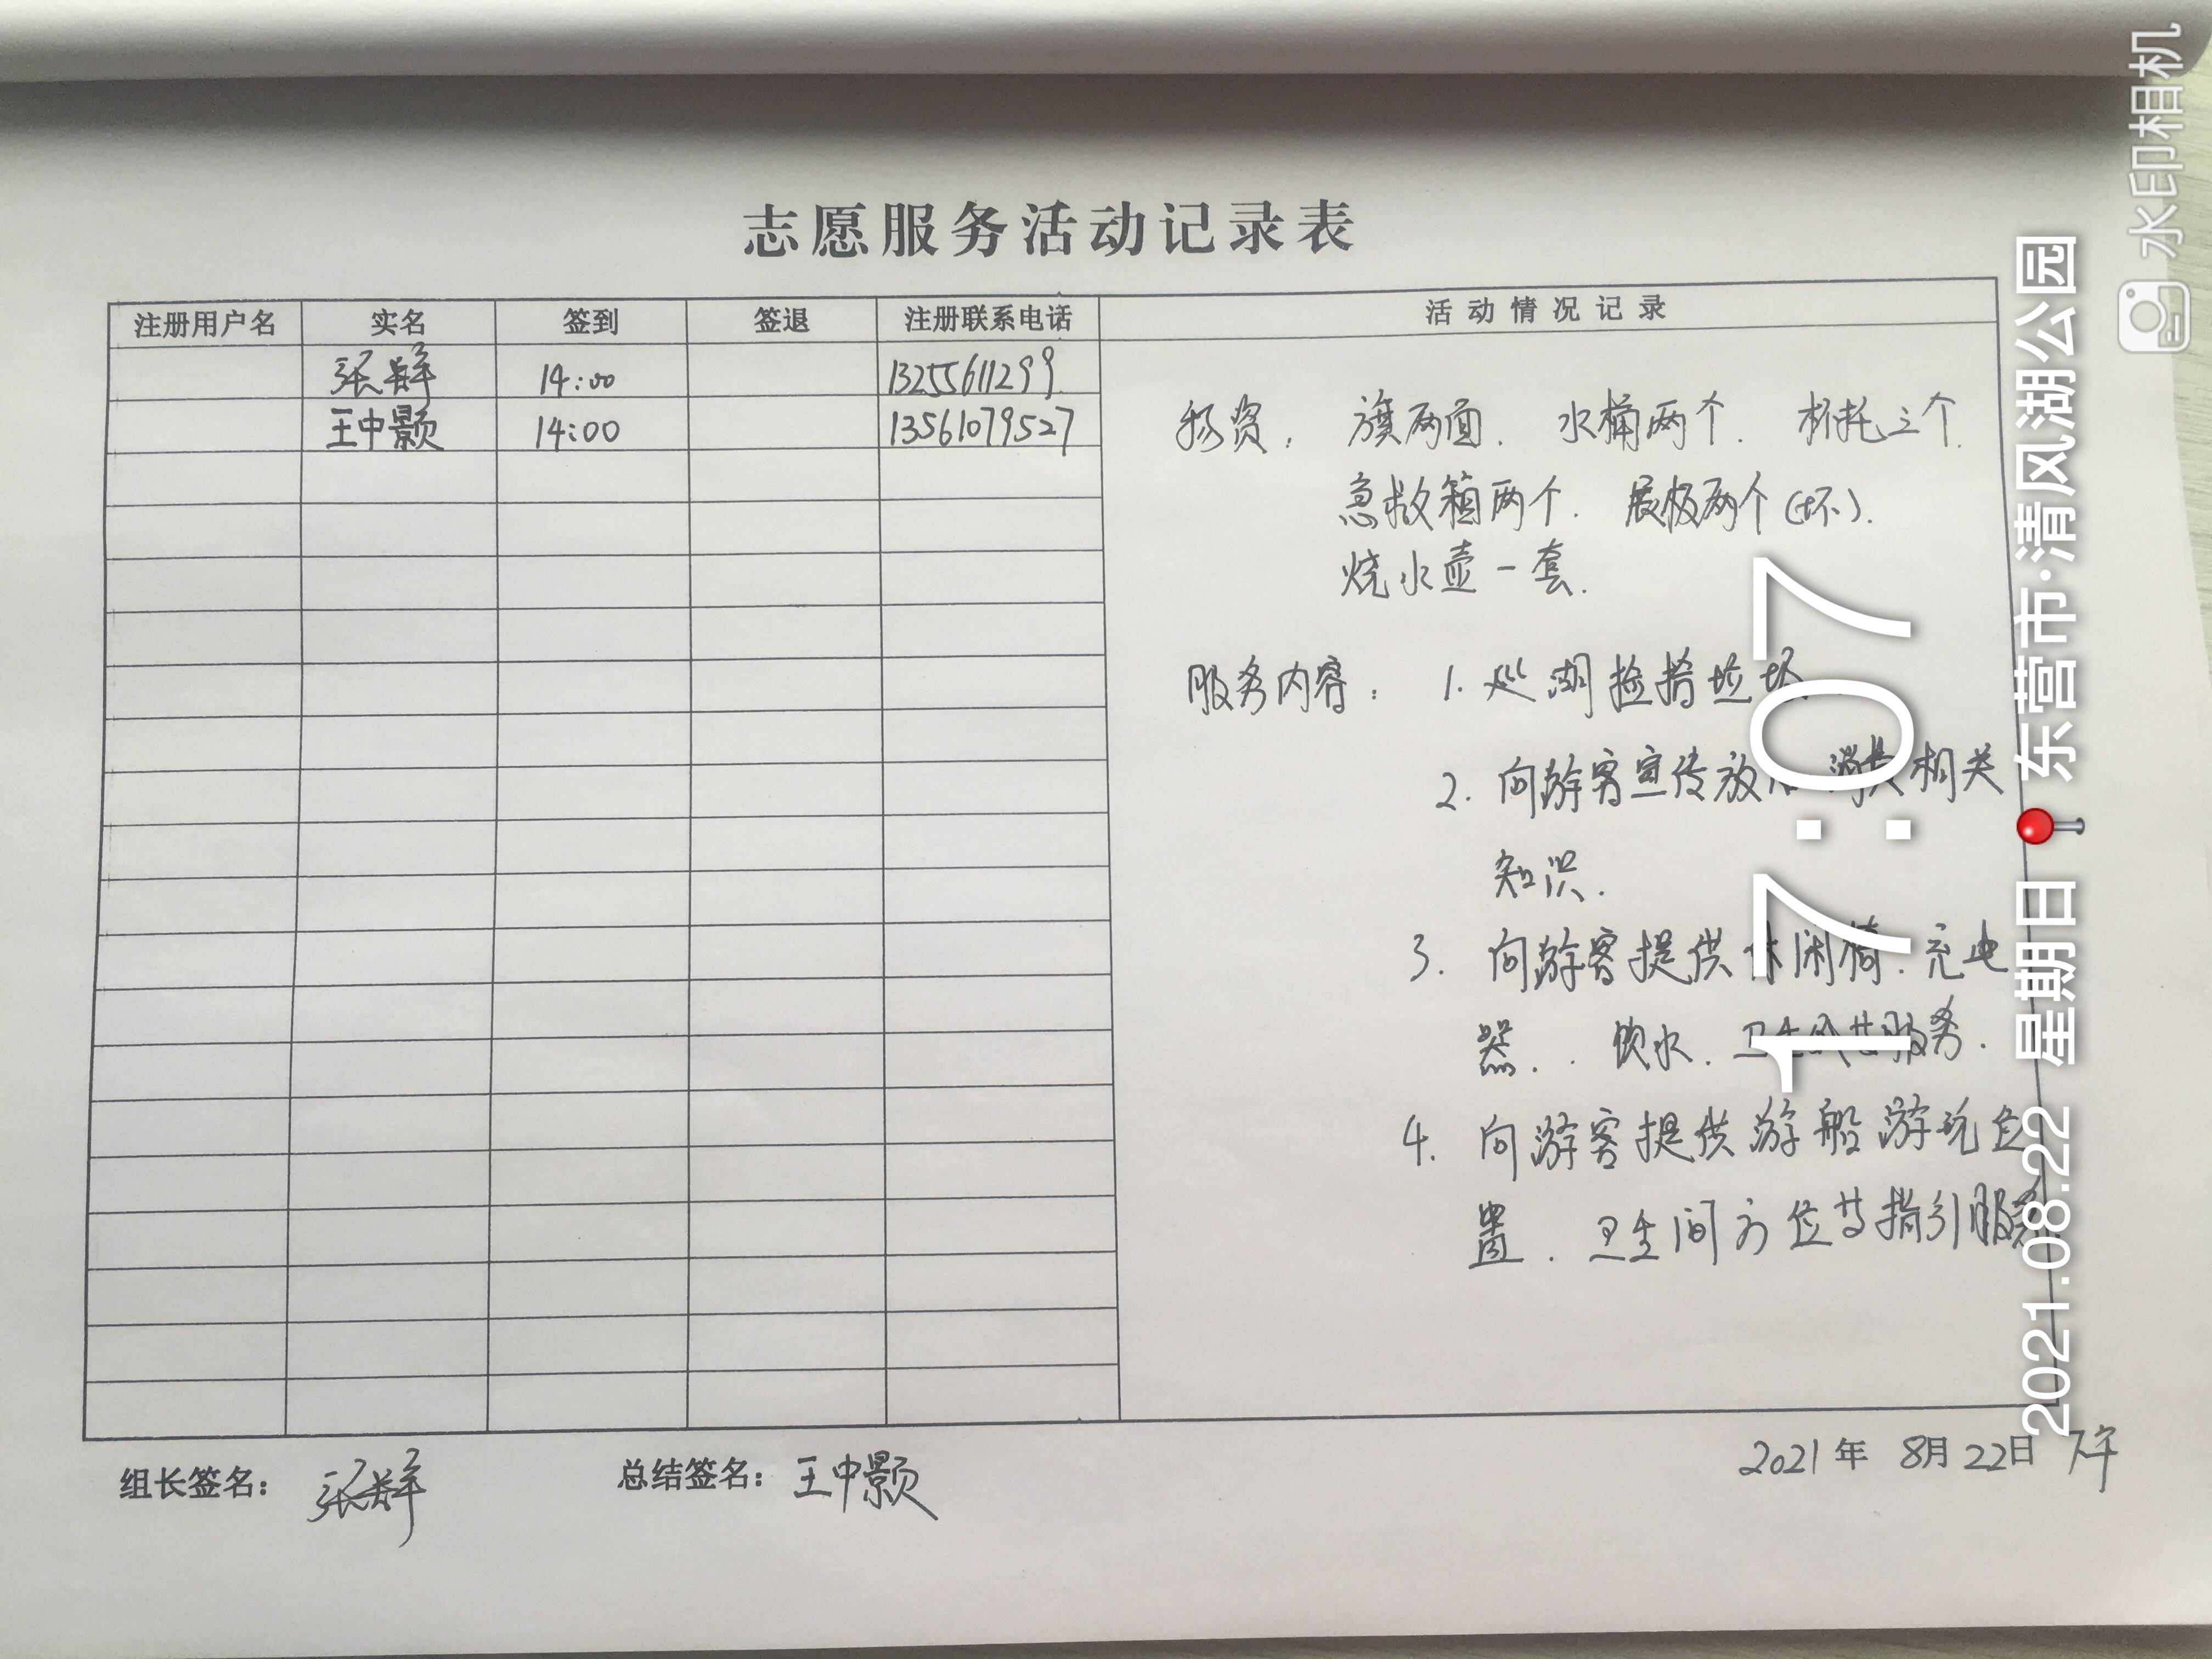 志愿服务活动记录表
注册用户名 实名 签到 签退 注册联系电话 活动情况记录
张群 14:00 13255611299
王中颢 14:00 13561079527
物资: 旗两面. 水桶两个. 杯托三个.
急救箱两个. 展板两个(坏).
烧水壶一套.
服务内容: 1. 巡湖捡拾垃圾
2. 向游客宣传 相关
知识.
3. 向游客提供休闲椅.充电
器. 饮水. 服务.
4. 向游客提供游船游玩位
置. 卫生间方位等指引服务
组长签名: 张群 总结签名: 王中颢 2021年 8月22日 下午
17:07
2021.08.22 星期日 东营市·清风湖公园
水印相机